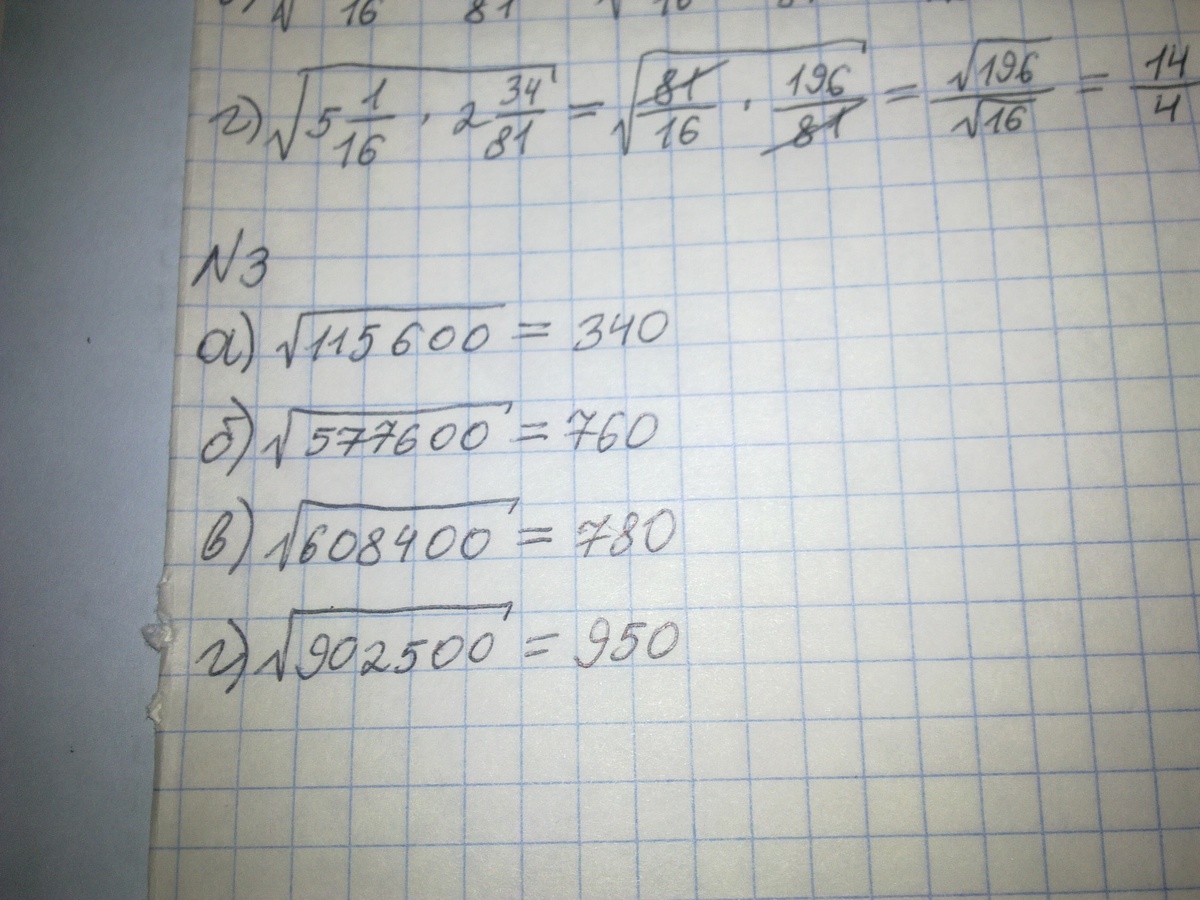 16 81 16
г) √(5 1/16 · 2 34/81) = √(81/16 · 196/81) = √196/√16 = 14/4
N3
а) √115600 = 340
б) √577600 = 760
в) √608400 = 780
г) √902500 = 950